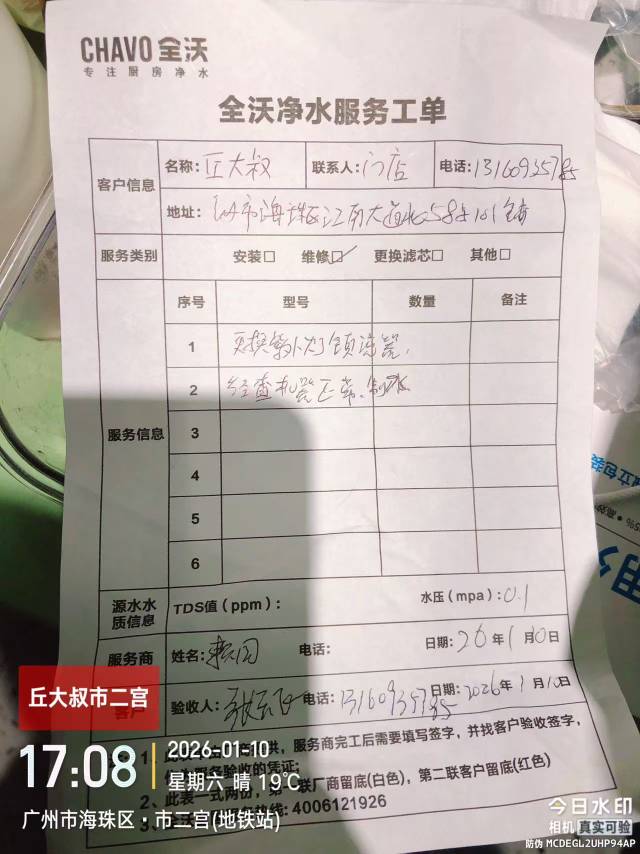 CHAVO 全沃
专注厨房净水
全沃净水服务工单
客户信息
名称：丘大叔 联系人：门店 电话：13160935785
地址：广州市海珠区江南大道北 101
服务类别 安装□ 维修☑ 更换滤芯□ 其他□
服务信息
序号 型号 数量 备注
1 更换紫外灯镇流器，
2 经查机器正常，制水
3
4
5
6
源水水质信息 TDS值（ppm）： 水压（mpa）：0.1
服务商 姓名： 电话： 日期：26年1月10日
客户 验收人： 电话：13160935785 日期：2026年1月10日
1、此 供，服务商完工后需要填写签字，并找客户验收签字，
服务验收的凭证；
2、此表一式两份，第一联厂商留底(白色)，第二联客户留底(红色)
3、 热线：4006121926
丘大叔市二宫
17:08
2026-01-10
星期六 晴 19℃
广州市海珠区·市二宫(地铁站)
今日水印
相机 真实可验
防伪 MCDEGL2UHP94AP